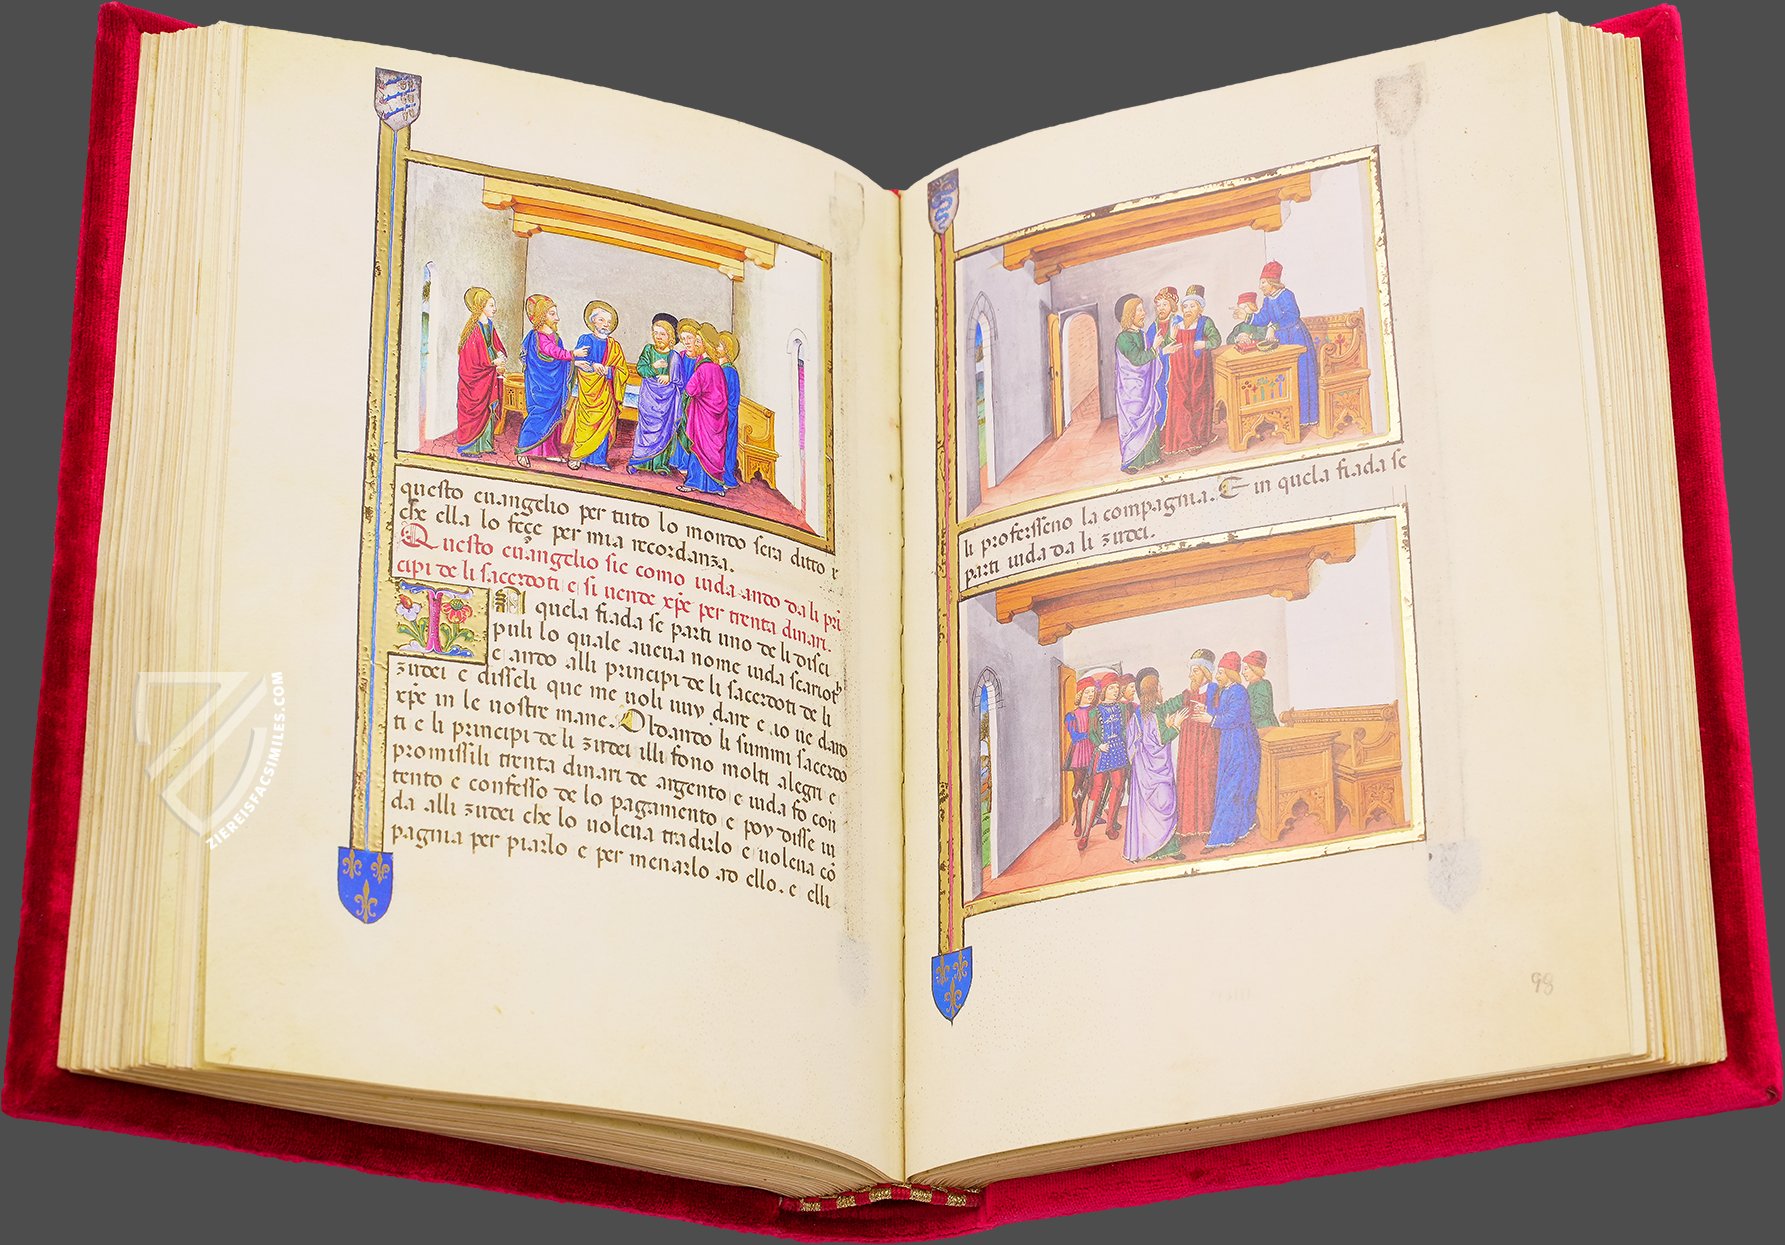 questo euangelio per tuto lo mondo sera ditto z
che ella lo feçe per mia recordanza.
Questo euangelio sie como iuda ando da li pri
cipi de li sacerdoti e si uende xpe per trenta dinari.
IN quela fiada se parti uno de li disci
puli lo quale aueua nome iuda scarioth
e ando alli principi de li sacerdoti de li
zudei e disseli que me uoli uuy dare e io ue daro
xpe in le uostre mane. Oldando li summi sacerdo
ti e li principi de li zudei illi fono molti alegri e
promissili trenta dinari de argento e iuda fo con
tento e confesso de lo pagamento e poy disse iu
da alli zudei che lo uoleua tradirlo e uoleua cō
pagnia per piarlo e per menarlo ad ello. e elli
li proferisseno la compagnia. E in quela fiada se
parti iuda da li zudei.
98
ZIEREISFACSIMILES.COM